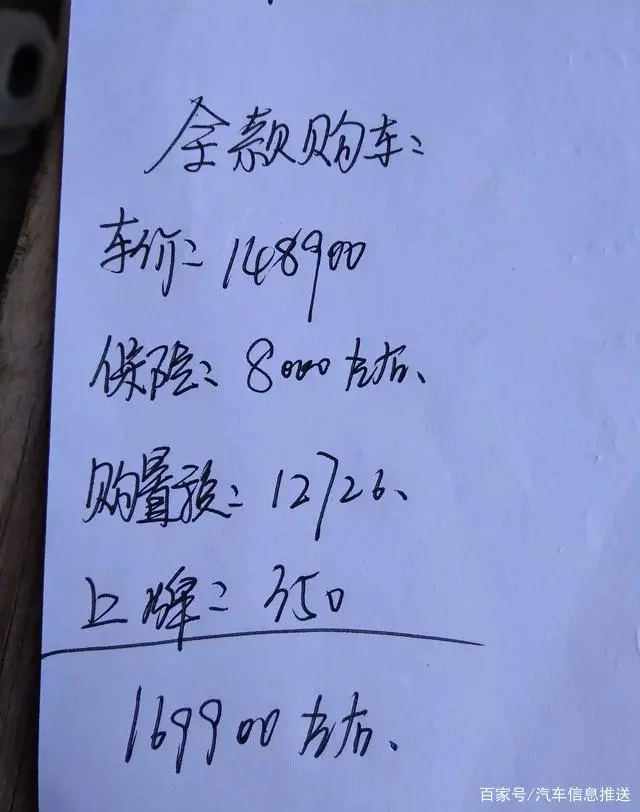 全款购车:
车价: 148900
保险: 8000左右、
购置税: 12726、
上牌: 350
169900左右、
百家号/汽车信息推送